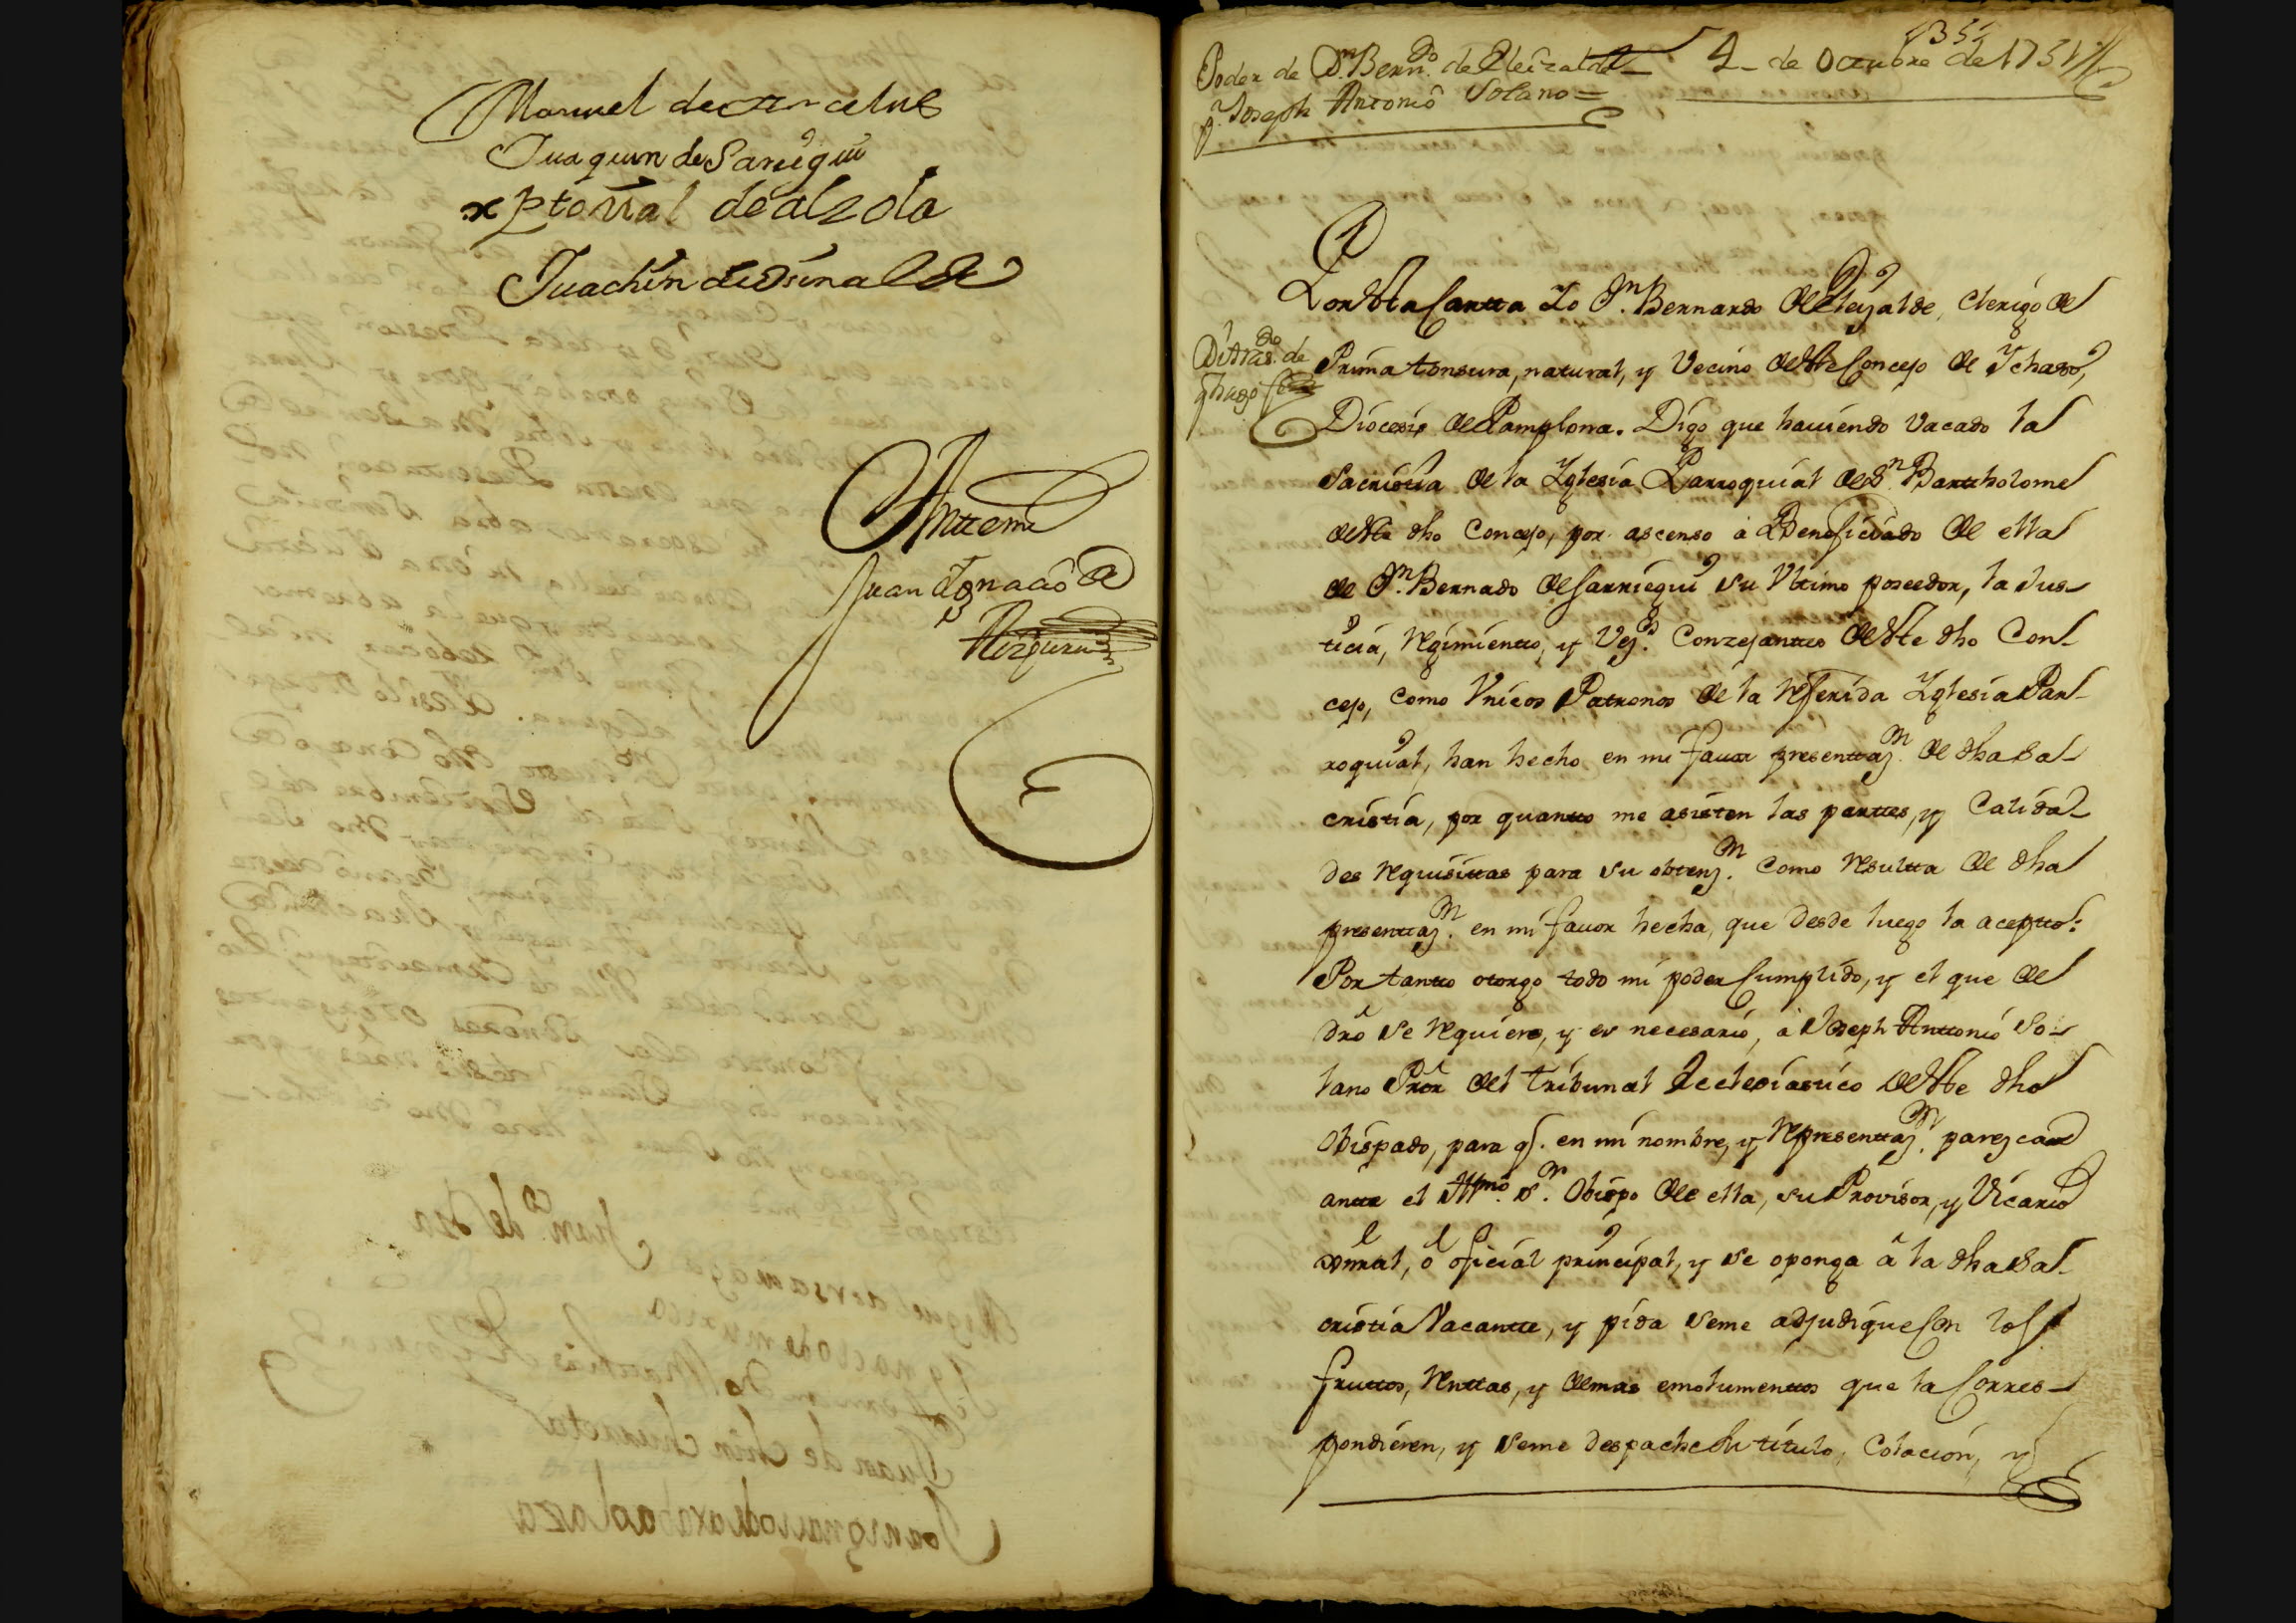 Manuel de
Juaquin de Sarrigui
xptoval de alzola
Juachin de Usinalde
Anttemi
Juan Ygnacio de
135
Poder de Dn. Berndo. de Eleizalde 4 de Octubre de 1751
pa. Joseph Antonio Solano =
Por estta Cartta Yo Dn. Bernardo de Eleyzalde, Clerigo de
Dittrasdo. de
Prima tonsura, natural, y Vecino de estte Concejo de Ychaso,
Diocesis de Pamplona. Digo que haviendo Vacado la
Sacristia de la Yglesia Parroquial de Sn. Barttholome
de estte dho Concejo, por ascenso a Beneficiado de ella
de Dn. Bernado de Sarriegui su Ultimo poseedor, la Jus-
ticia, Regimientto, y Vezs. Conzejanttes de estte dho Con-
cejo, como Unicos Patronos de la Referida Yglesia Par-
roquial, han hecho en mi favor presenttazn. de dha Sa-
cristia, por quantto me asisten las parttes, y Calida-
des Requisittas para su obtenzn. como Resultta de dha
presenttazn. en mi favor hecha, que desde luego la acepto:
Por tantto otorgo todo mi poder Cumplido, y el que de
dro se Requiere, y es necesario, a Joseph Anttonio So-
lano Pror del Tribunal Eclesiastico de estte dho
Obispado, para q. en mi nombre, y Representtazn. parezca
antte el Illmo. Sr. Obispo de ella, su Provisor, y Vicario
xeneral, ó oficial principal, y se oponga à la dha Sa-
cristia Vacantte, y pida seme adjudique Con los
fruttos, Renttas, y demas emolumenttos que la Corres-
pondieren, y seme despache su titulo, Colacion, y